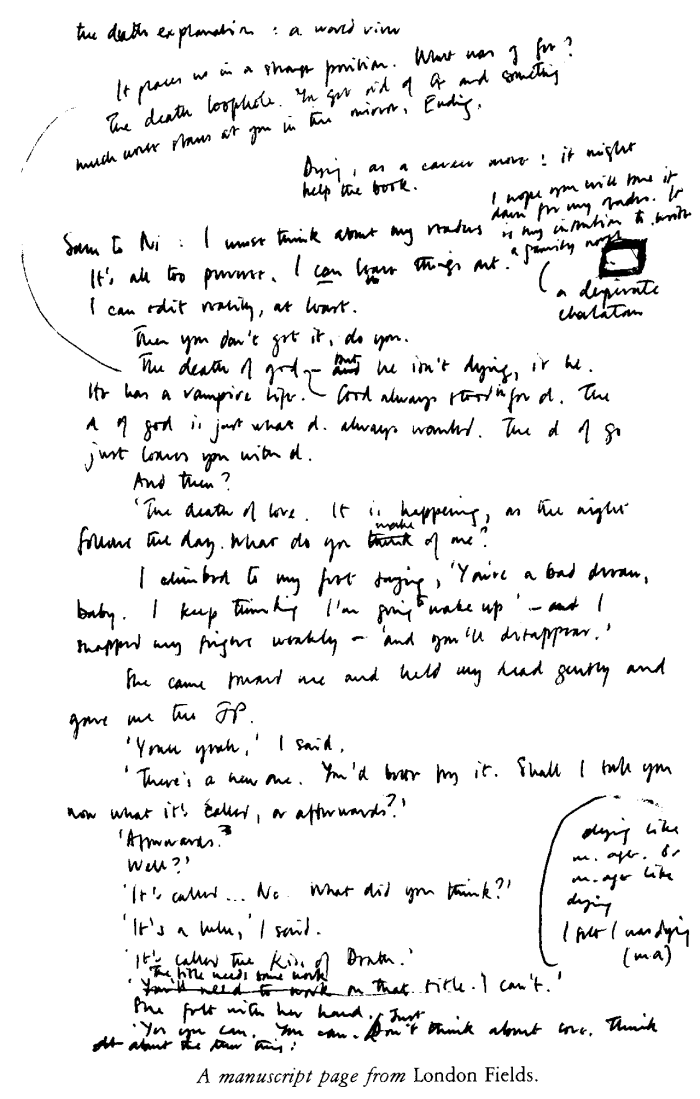 the death explanation : a world view
It places us in a strange position. What was g for?
The death loophole. You get rid of G and something
much worse stares at you in the mirror. Ending.
Dying, as a career move : it might
help the book.
I hope you will tone it
down for my readers. It
is my intention to write
a family
Sam to Ni : I must think about my readers
It's all too perverse. I can leave things out.
a desperate
charlatan
I can edit reality, at least.
Then you don't get it, do you.
The death of god – but and he isn't dying, is he.
He has a vampire life. God always stood in for d. The
d of god is just what d. always wanted. The d of go
just leaves you with d.
And then?
'The death of love. It is happening, as the night
make
follows the day. What do you think of me?'
I climbed to my feet saying, 'You're a bad dream,
baby. I keep thinking I'm going to wake up' – and I
snapped my fingers weakly – 'and you'll disappear.'
She came toward me and held my head gently and
gave me the JP.
'Yeah yeah,' I said.
'There's a new one. You'd better try it. Shall I tell you
now what it's called, or afterwards?'
'Afterwards.'
Well?'
'It's called... No. What did you think?'
'It's a lulu,' I said.
dying like
m. age. Or
m. age like
dying
I felt I was dying
(ma)
'It's called the Kiss of Death.'
The title needs some work
'You'll need to work on that title. I can't.'
She felt with her hand. Just
'Yes you can. You can. Don't think about love. Think
about the new thing.'
A manuscript page from London Fields.